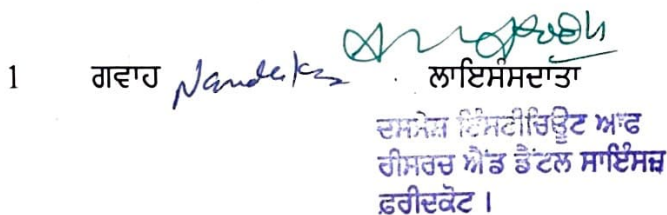 1 ਗਵਾਹ ਲਾਇਸੰਸਦਾਤਾ
ਦਸਮੇਸ਼ ਇੰਸਟੀਚਿਊਟ ਆਫ
ਰੀਸਰਚ ਐਂਡ ਡੈਂਟਲ ਸਾਇੰਸਜ਼
ਫ਼ਰੀਦਕੋਟ।